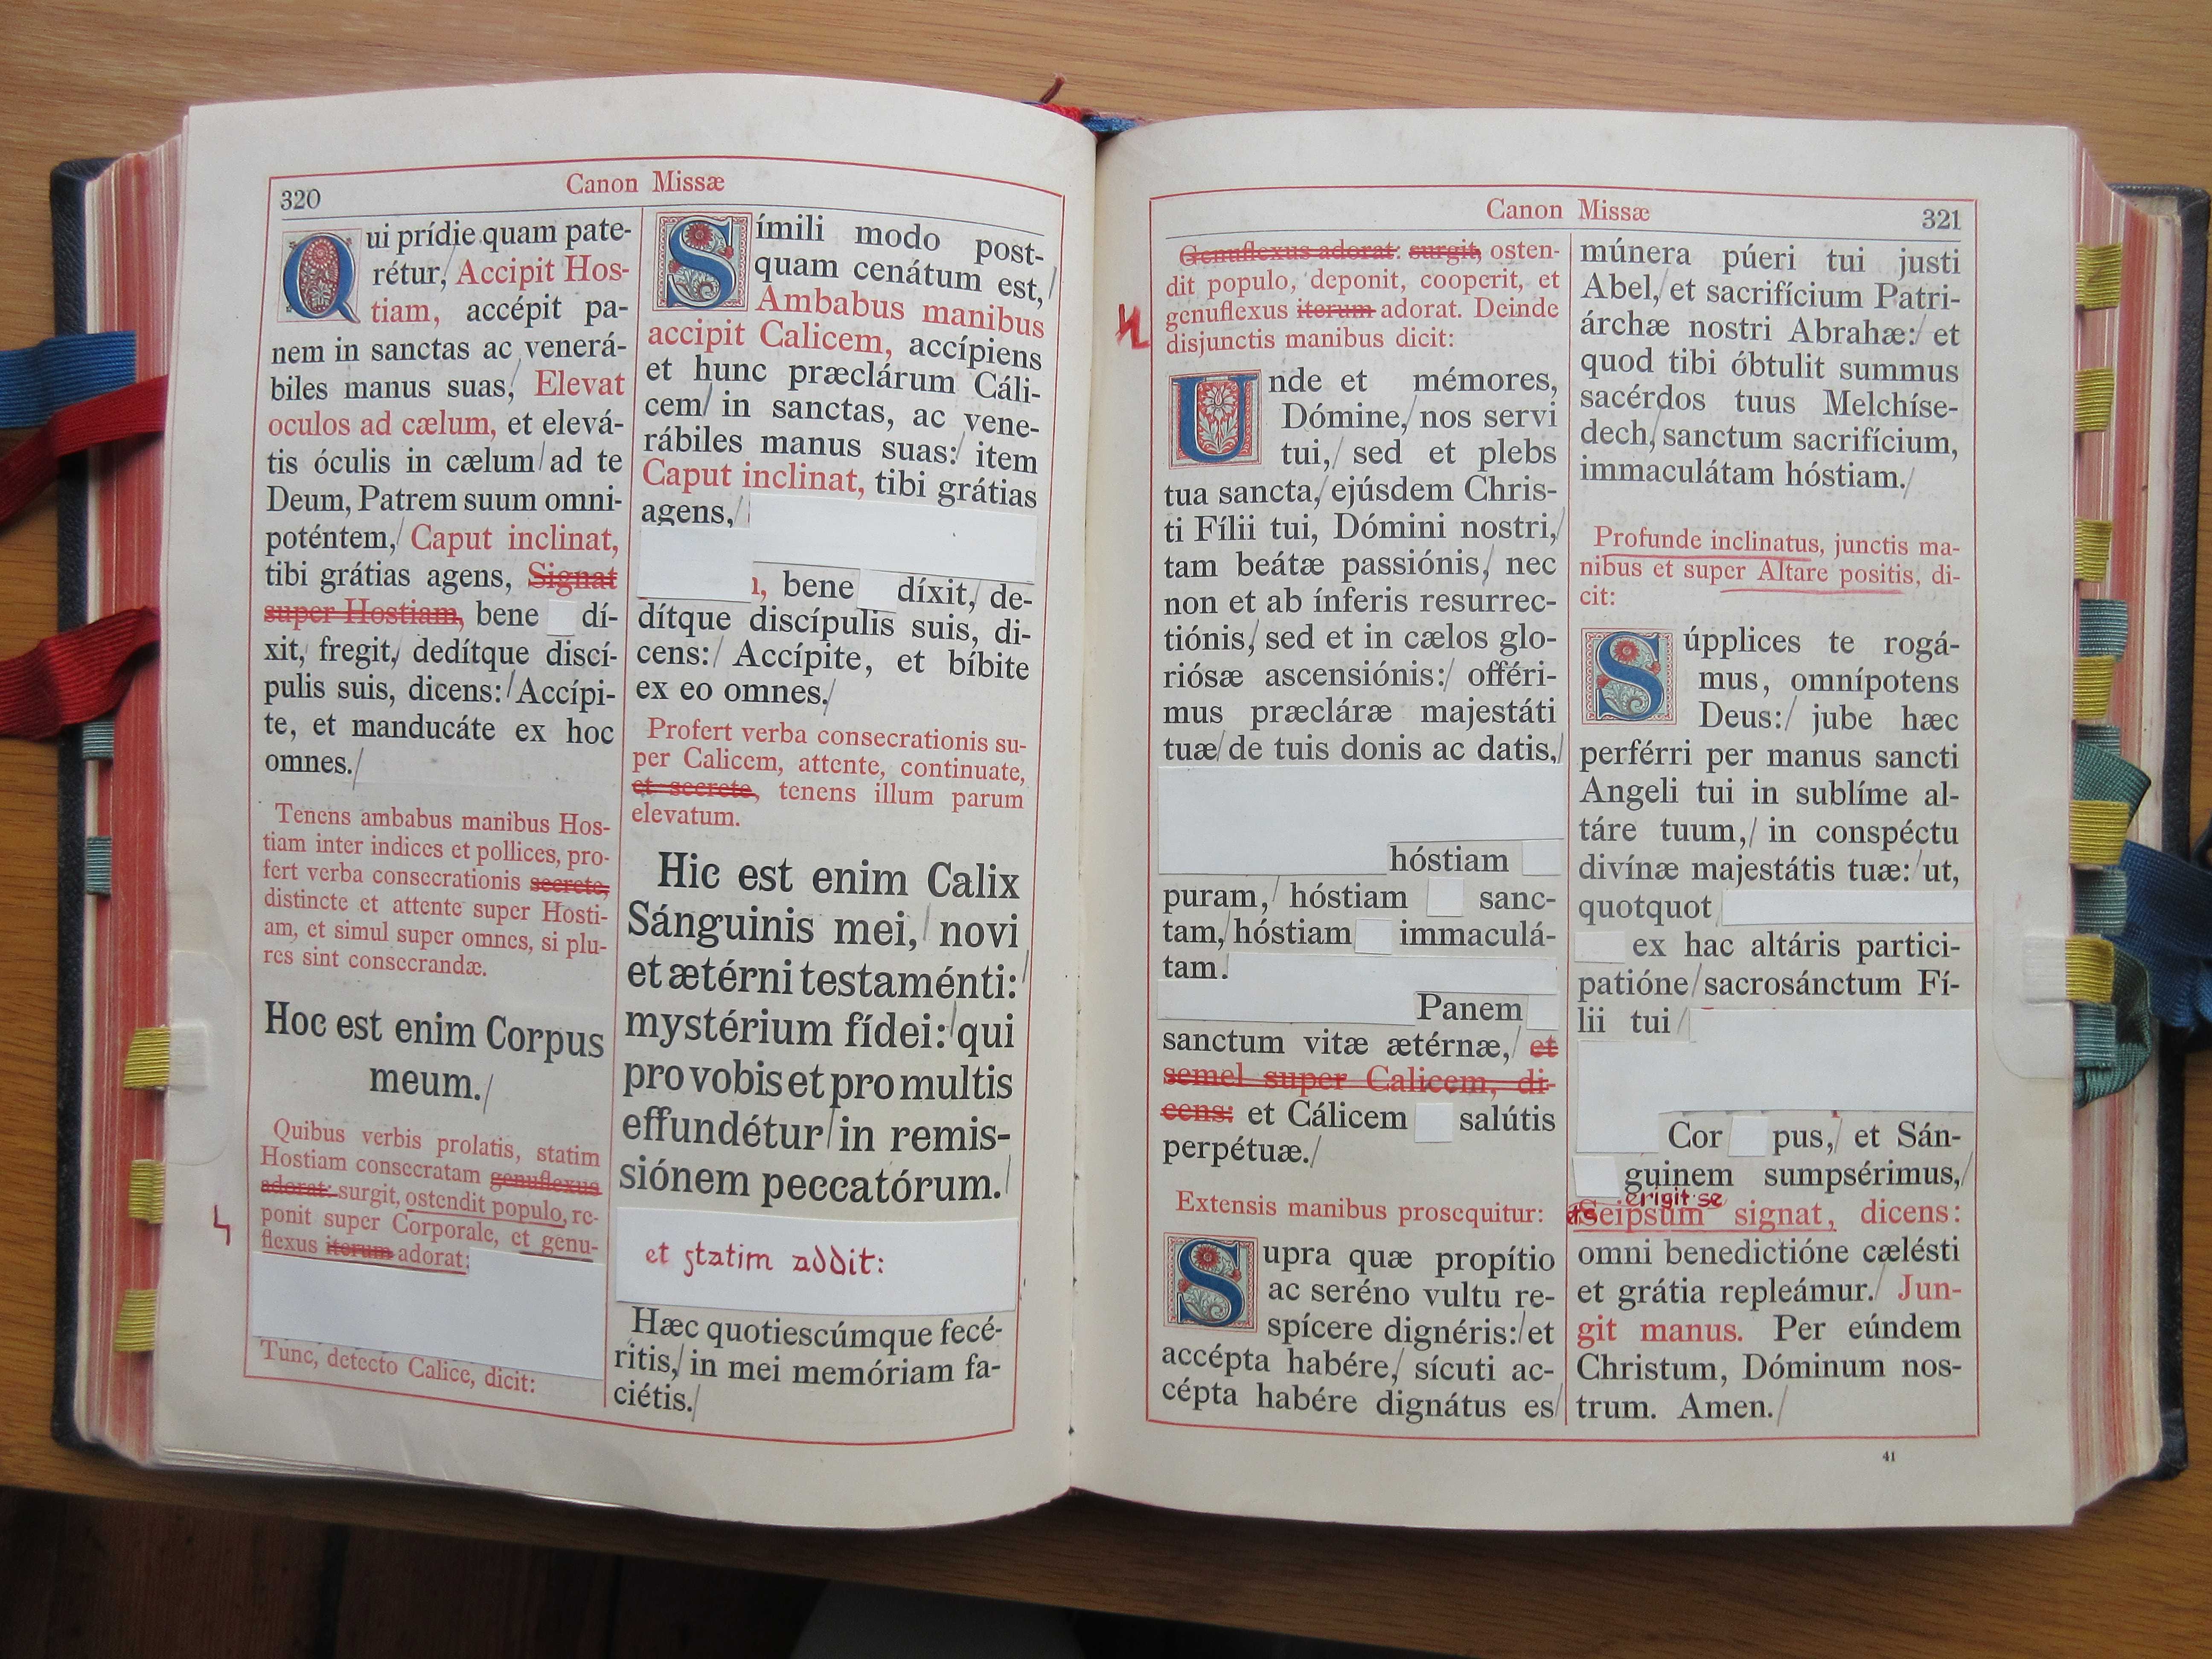 320
Canon Missæ
Qui prídie quam pate-
rétur, Accipit Hos-
tiam, accépit pa-
nem in sanctas ac venerá-
biles manus suas, Elevat
oculos ad cælum, et elevá-
tis óculis in cælum/ ad te
Deum, Patrem suum omni-
poténtem,/ Caput inclinat,
tibi grátias agens, Signat
super Hostiam, bene dí-
xit,/ fregit,/ dedítque discí-
pulis suis, dicens:/ Accípi-
te, et manducáte ex hoc
omnes./
Tenens ambabus manibus Hos-
tiam inter indices et pollices, pro-
fert verba consecrationis secrete,
distincte et attente super Hosti-
am, et simul super omnes, si plu-
res sint consecrandæ.
Hoc est enim Corpus
meum./
Quibus verbis prolatis, statim
Hostiam consecratam genuflexus
adorat: surgit, ostendit populo, re-
ponit super Corporale, et genu-
flexus iterum adorat:
Tunc, detecto Calice, dicit:
Símili modo post-
quam cenátum est,/
Ambabus manibus
accipit Calicem, accípiens
et hunc præclárum Cáli-
cem/ in sanctas, ac vene-
rábiles manus suas:/ item
Caput inclinat, tibi grátias
agens,/
bene díxit,/ de-
dítque discípulis suis, di-
cens:/ Accípite, et bíbite
ex eo omnes./
Profert verba consecrationis su-
per Calicem, attente, continuate,
et secrete, tenens illum parum
elevatum.
Hic est enim Calix
Sánguinis mei,/ novi
et ætérni testaménti:/
mystérium fídei:/ qui
pro vobis et pro multis
effundétur/ in remis-
siónem peccatórum./
et statim addit:
Hæc quotiescúmque fecé-
ritis,/ in mei memóriam fa-
ciétis./
Canon Missæ
321
Genuflexus adorat: surgit, osten-
dit populo, deponit, cooperit, et
genuflexus iterum adorat. Deinde
disjunctis manibus dicit:
Unde et mémores,
Dómine,/ nos servi
tui,/ sed et plebs
tua sancta,/ ejúsdem Chris-
ti Fílii tui, Dómini nostri,/
tam beátæ passiónis,/ nec
non et ab ínferis resurrec-
tiónis,/ sed et in cælos glo-
riósæ ascensiónis:/ offéri-
mus præcláræ majestáti
tuæ/ de tuis donis ac datis,/
hóstiam
puram,/ hóstiam sanc-
tam,/ hóstiam immaculá-
tam.
Panem
sanctum vitæ ætérnæ,/ et
semel super Calicem, di-
cens: et Cálicem salútis
perpétuæ./
Extensis manibus prosequitur:
Supra quæ propítio
ac seréno vultu re-
spícere dignéris:/ et
accépta habére,/ sícuti ac-
cépta habére dignátus es/
múnera púeri tui justi
Abel,/ et sacrifícium Patri-
árchæ nostri Abrahæ:/ et
quod tibi óbtulit summus
sacérdos tuus Melchíse-
dech,/ sanctum sacrifícium,
immaculátam hóstiam./
Profunde inclinatus, junctis ma-
nibus et super Altare positis, di-
cit:
Súpplices te rogá-
mus, omnípotens
Deus:/ jube hæc
perférri per manus sancti
Angeli tui in sublíme al-
táre tuum,/ in conspéctu
divínæ majestátis tuæ:/ ut,
quotquot
ex hac altáris partici-
patióne/ sacrosánctum Fí-
lii tui/
Cor pus,/ et Sán-
guinem sumpsérimus,/
erigit se
Seipsum signat, dicens:
omni benedictióne cælésti
et grátia repleámur./ Jun-
git manus. Per eúndem
Christum, Dóminum nos-
trum. Amen./
41